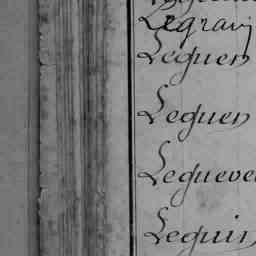 Legrav
Leguen
Leguen
Legueve
Leguin